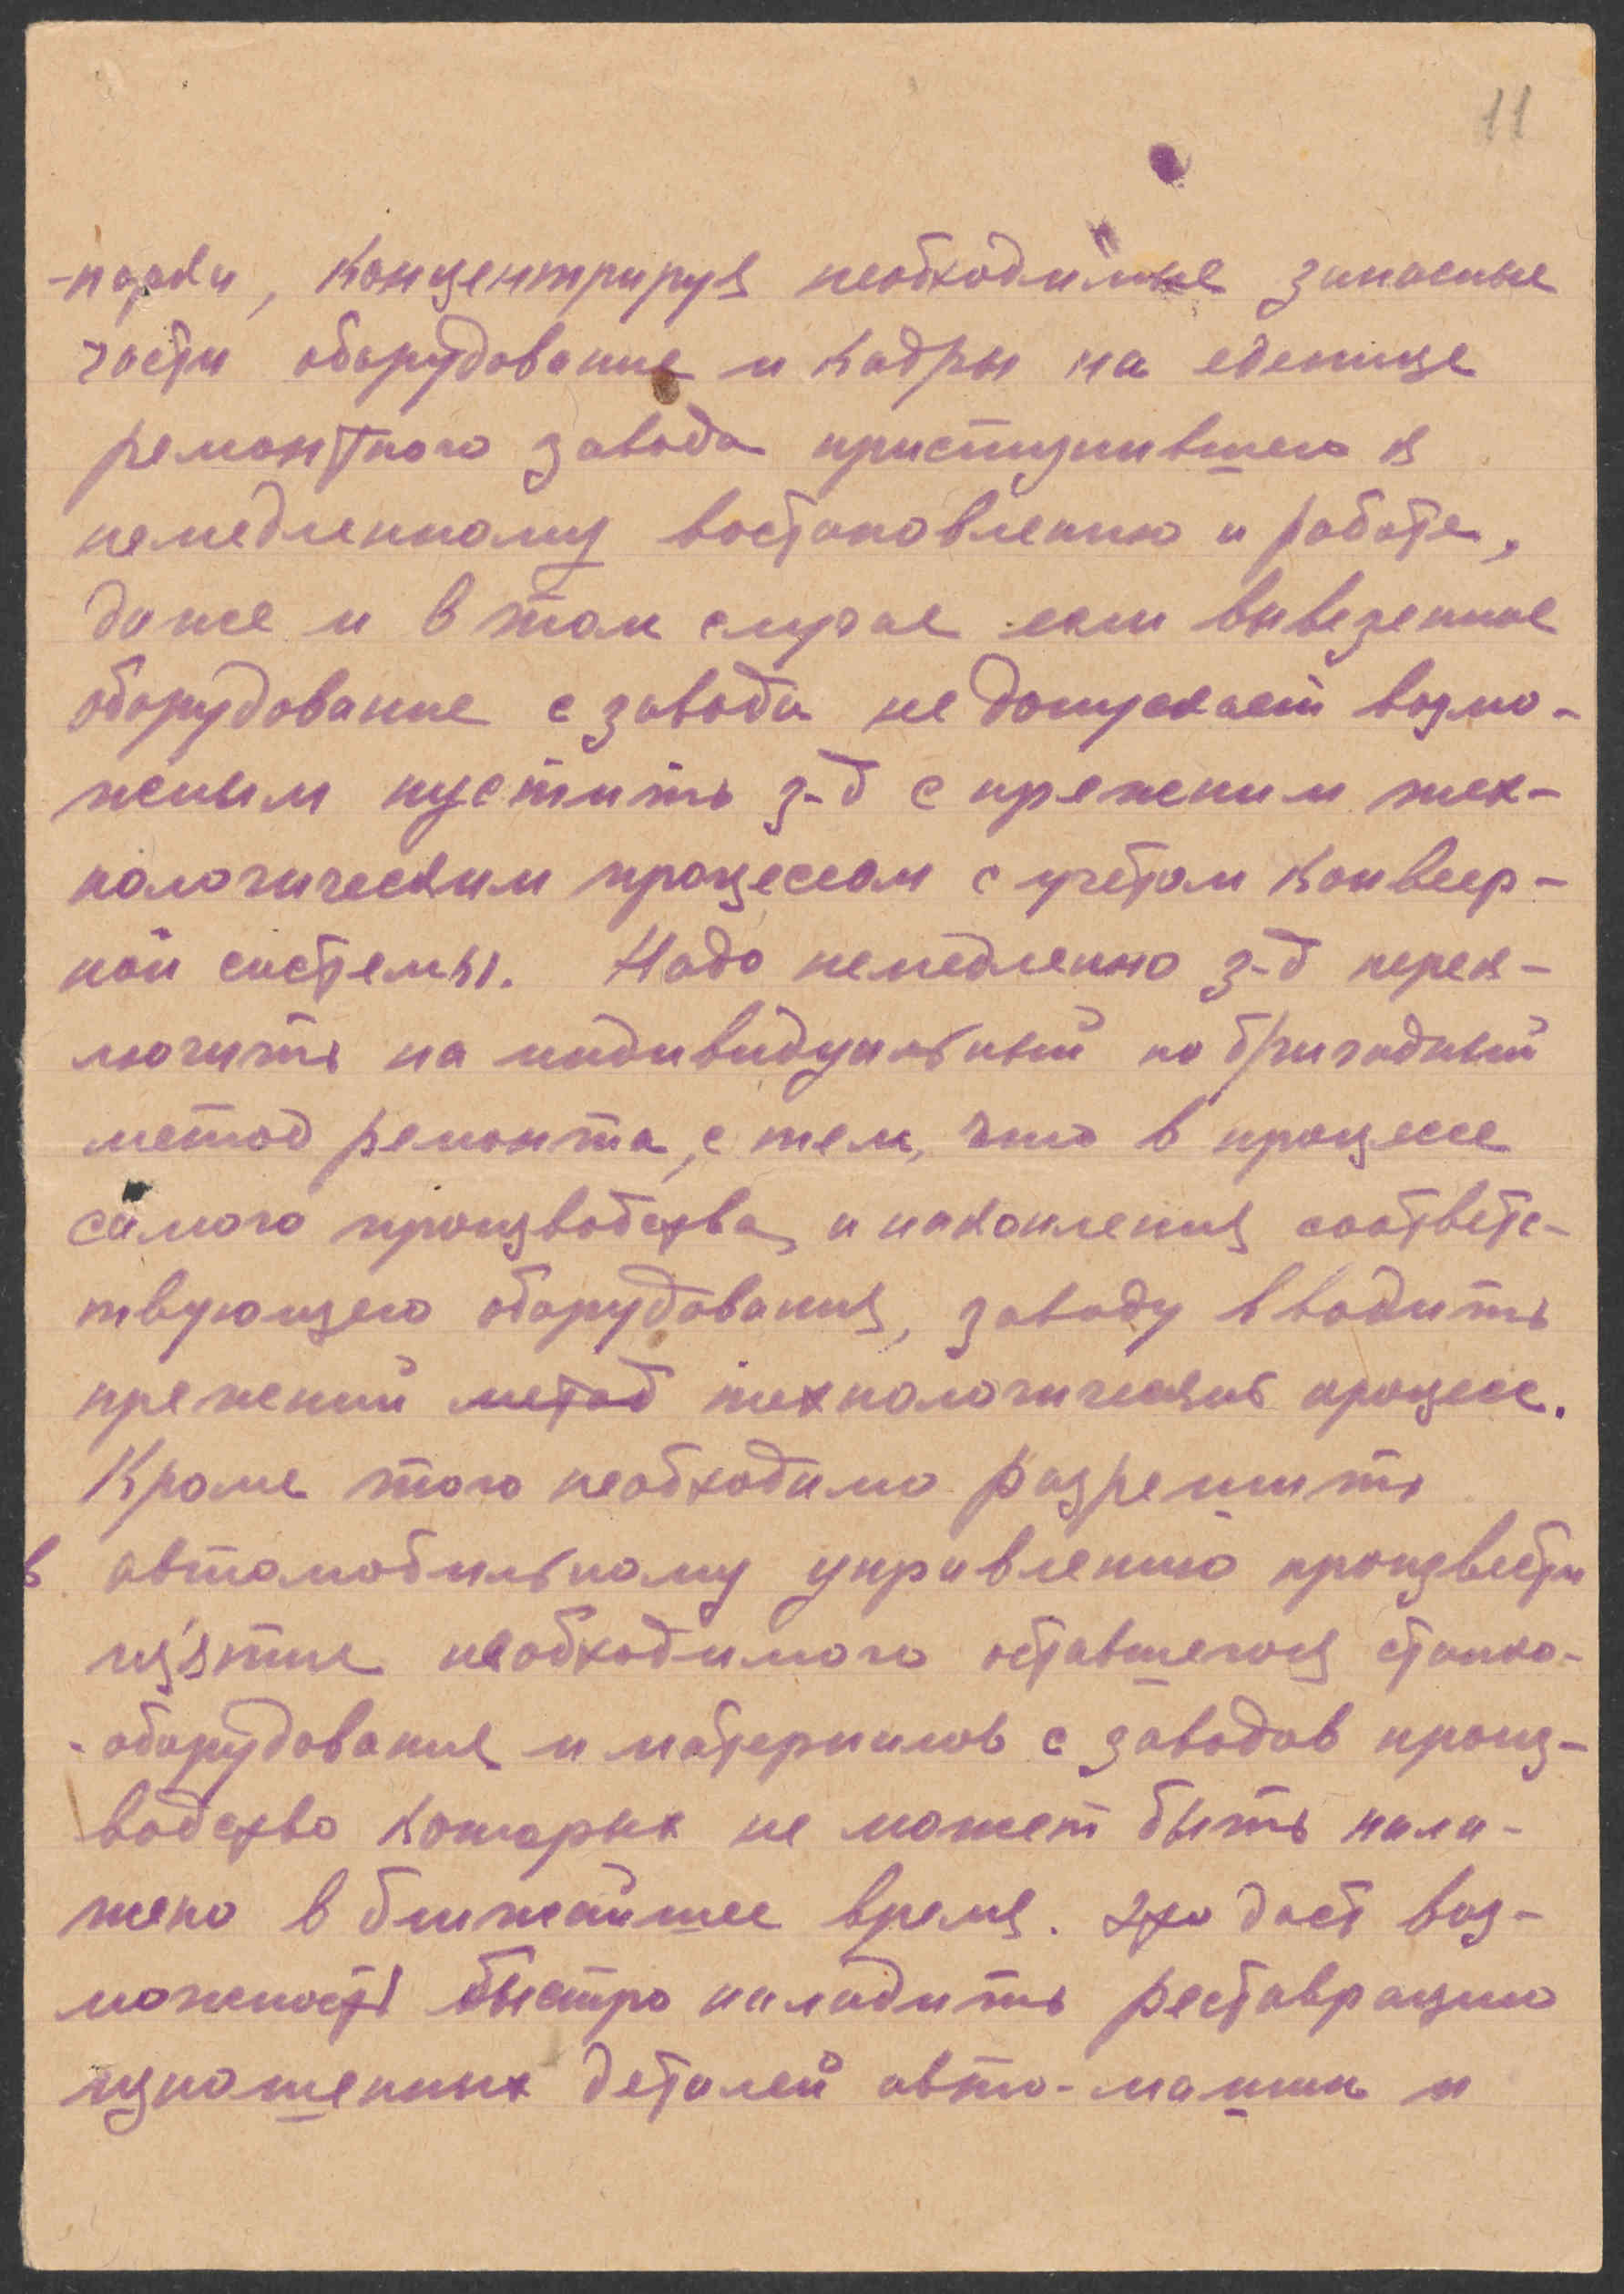 11
-парки, концентрируя необходимые запасные
части оборудование и кадры на еденице
ремонтного завода приступившего к
немедленному востановлению и работе,
даже и в том случае если вывезенное
оборудование с завода не допускает возмо-
жным пустить з-д с прежним тех-
нологическим процессом с учетом конвеер-
ной системы. Надо немедленно з-д перек-
лючить на индивидуальный по бригадный
метод ремонта, с тем, что в процессе
самого производства и накопления соответс-
твующего оборудования, заводу вводить
прежний метод технологический процесс.
Кроме того необходимо разрешить
в автомобильному управлению произвести
из'ятие необходимого оставшегося станко-
-оборудования и материалов с заводов произ-
водство которых не может быть нала-
жено в ближайшее время. Это даст воз-
можность быстро наладить реставрацию
изношенных деталей авто-машин и